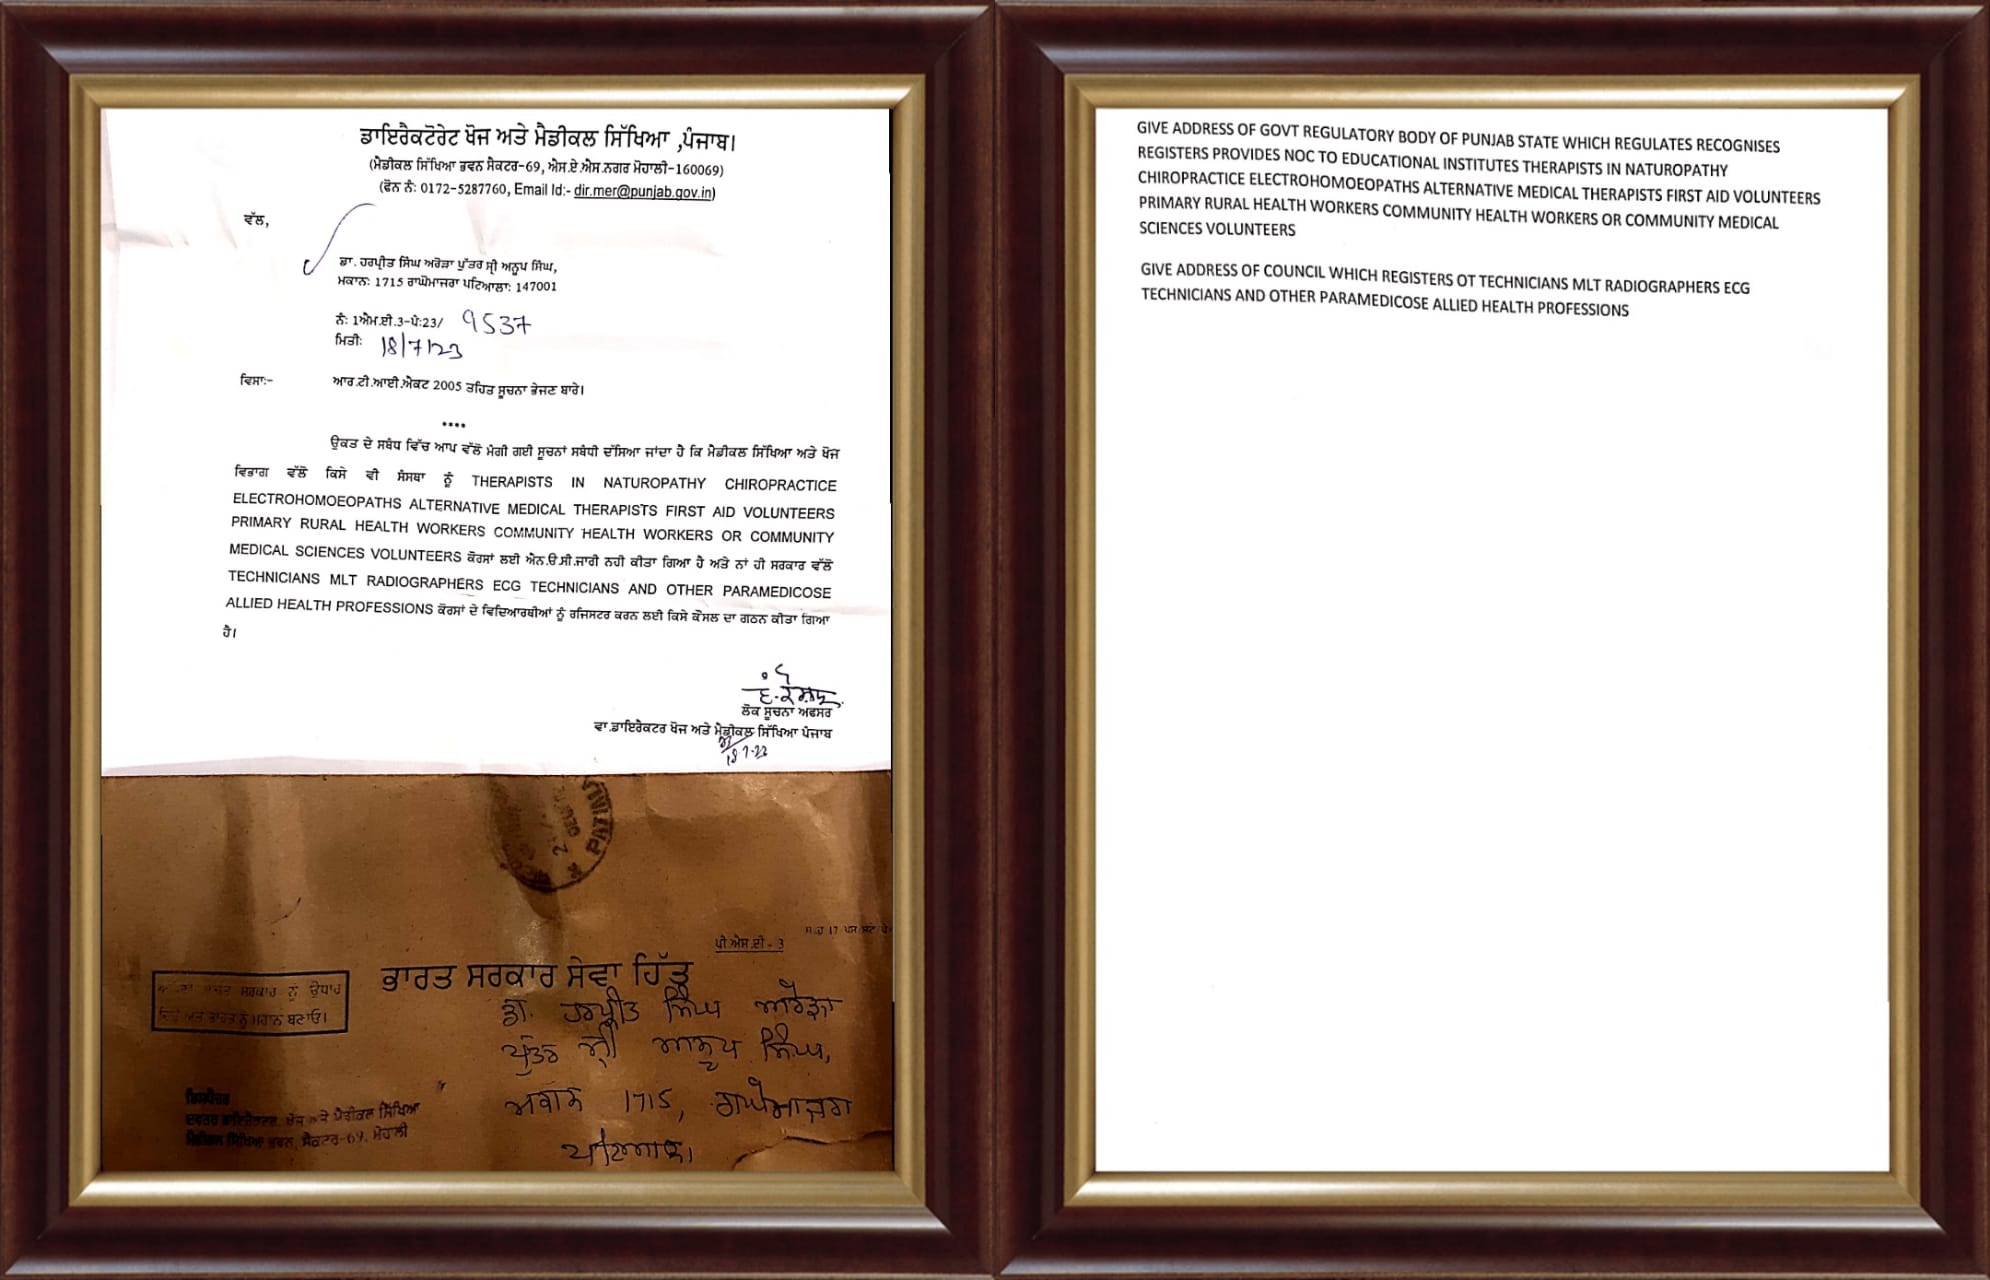 ਡਾਇਰੈਕਟੋਰੇਟ ਖੋਜ ਅਤੇ ਮੈਡੀਕਲ ਸਿੱਖਿਆ ,ਪੰਜਾਬ।
(ਮੈਡੀਕਲ ਸਿੱਖਿਆ ਭਵਨ ਸੈਕਟਰ-69, ਐਸ.ਏ.ਐਸ.ਨਗਰ ਮੋਹਾਲੀ-160069)
(ਫੋਨ ਨੰ: 0172-5287760, Email Id:- dir.mer@punjab.gov.in)
ਵੱਲ,
ਡਾ. ਹਰਪ੍ਰੀਤ ਸਿੰਘ ਅਰੋੜਾ ਪੁੱਤਰ ਸ੍ਰੀ ਅਨੂਪ ਸਿੰਘ,
ਮਕਾਨ: 1715 ਰਾਘੋਮਾਜਰਾ ਪਟਿਆਲਾ: 147001
ਨੰ: 1ਐਮ.ਈ.3-ਪੰ:23/ 9537
ਮਿਤੀ: 18/7/23
ਵਿਸਾ:- ਆਰ.ਟੀ.ਆਈ.ਐਕਟ 2005 ਤਹਿਤ ਸੂਚਨਾ ਭੇਜਣ ਬਾਰੇ।
****
ਉਕਤ ਦੇ ਸਬੰਧ ਵਿੱਚ ਆਪ ਵੱਲੋਂ ਮੰਗੀ ਗਈ ਸੂਚਨਾਂ ਸਬੰਧੀ ਦੱਸਿਆ ਜਾਂਦਾ ਹੈ ਕਿ ਮੈਡੀਕਲ ਸਿੱਖਿਆ ਅਤੇ ਖੋਜ
ਵਿਭਾਗ ਵੱਲੋਂ ਕਿਸੇ ਵੀ ਸੰਸਥਾ ਨੂੰ THERAPISTS IN NATUROPATHY CHIROPRACTICE
ELECTROHOMOEOPATHS ALTERNATIVE MEDICAL THERAPISTS FIRST AID VOLUNTEERS
PRIMARY RURAL HEALTH WORKERS COMMUNITY HEALTH WORKERS OR COMMUNITY
MEDICAL SCIENCES VOLUNTEERS ਕੋਰਸਾਂ ਲਈ ਐਨ.ਓ.ਸੀ.ਜਾਰੀ ਨਹੀ ਕੀਤਾ ਗਿਆ ਹੈ ਅਤੇ ਨਾਂ ਹੀ ਸਰਕਾਰ ਵੱਲੋਂ
TECHNICIANS MLT RADIOGRAPHERS ECG TECHNICIANS AND OTHER PARAMEDICOSE
ALLIED HEALTH PROFESSIONS ਕੋਰਸਾਂ ਦੇ ਵਿਦਿਆਰਥੀਆਂ ਨੂੰ ਰਜਿਸਟਰ ਕਰਨ ਲਈ ਕਿਸੇ ਕੌਂਸਲ ਦਾ ਗਠਨ ਕੀਤਾ ਗਿਆ
ਹੈ।
ਲੋਕ ਸੂਚਨਾ ਅਫਸਰ
ਵਾ.ਡਾਇਰੈਕਟਰ ਖੋਜ ਅਤੇ ਮੈਡੀਕਲ ਸਿੱਖਿਆ ਪੰਜਾਬ
18.7.23
ਪੀ.ਐਸ.ਈ - 3
ਭਾਰਤ ਸਰਕਾਰ ਸੇਵਾ ਹਿੱਤ
ਸਰਕਾਰ ਨੂੰ ਉਧਾਰ
ਅਤੇ ਭਾਰਤ ਨੂੰ ਮਹਾਨ ਬਣਾਓ।
ਡਾ. ਹਰਪ੍ਰੀਤ ਸਿੰਘ ਅਰੋੜਾ
ਪੁੱਤਰ ਸ੍ਰੀ ਅਨੂਪ ਸਿੰਘ,
ਮਕਾਨ 1715, ਰਾਘੋਮਾਜਰਾ
ਪਟਿਆਲਾ।
ਡਿਸਪੈਚਰ
ਦਫਤਰ ਡਾਇਰੈਕਟਰ, ਖੋਜ ਅਤੇ ਮੈਡੀਕਲ ਸਿੱਖਿਆ
ਮੈਡੀਕਲ ਸਿੱਖਿਆ ਭਵਨ, ਸੈਕਟਰ-69, ਮੋਹਾਲੀ
GIVE ADDRESS OF GOVT REGULATORY BODY OF PUNJAB STATE WHICH REGULATES RECOGNISES
REGISTERS PROVIDES NOC TO EDUCATIONAL INSTITUTES THERAPISTS IN NATUROPATHY
CHIROPRACTICE ELECTROHOMOEOPATHS ALTERNATIVE MEDICAL THERAPISTS FIRST AID VOLUNTEERS
PRIMARY RURAL HEALTH WORKERS COMMUNITY HEALTH WORKERS OR COMMUNITY MEDICAL
SCIENCES VOLUNTEERS
GIVE ADDRESS OF COUNCIL WHICH REGISTERS OT TECHNICIANS MLT RADIOGRAPHERS ECG
TECHNICIANS AND OTHER PARAMEDICOSE ALLIED HEALTH PROFESSIONS